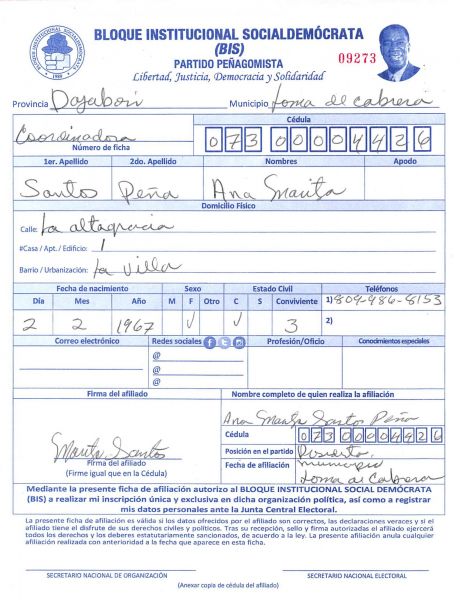 BLOQUE INSTITUCIONAL SOCIALDEMÓCRATA
(BIS)
PARTIDO PEÑAGOMISTA
Libertad, Justicia, Democracia y Solidaridad
09273
Provincia Dajabón Municipio Loma de Cabrera
Coordinadora
Número de ficha
Cédula
073 0000442 6
1er. Apellido 2do. Apellido Nombres Apodo
Santos Peña Ana Maritza
Domicilio Físico
Calle: La altagracia
#Casa / Apt. / Edificio: 1
Barrio / Urbanización: La Villa
Fecha de nacimiento Sexo Estado Civil Teléfonos
Día Mes Año M F Otro C S Conviviente 1) 809-986-8153
2 2 1967 √ √ 3 2)
Correo electrónico Redes sociales Profesión/Oficio Conocimientos especiales
@
@
@
Firma del afiliado Nombre completo de quien realiza la afiliación
Ana Maritza Santos Peña
Cédula 073 0000442 6
Maritza Santos
Firma del afiliado
(Firme igual que en la Cédula)
Posición en el partido Presidenta
Fecha de afiliación municipio
Loma de Cabrera
Mediante la presente ficha de afiliación autorizo al BLOQUE INSTITUCIONAL SOCIAL DEMÓCRATA
(BIS) a realizar mi inscripción única y exclusiva en dicha organización política, así como a registrar
mis datos personales ante la Junta Central Electoral.
La presente ficha de afiliación es válida si los datos ofrecidos por el afiliado son correctos, las declaraciones veraces y si el
afiliado tiene el disfrute de sus derechos civiles y políticos. Tras su recepción, sello y firma autorizadas el afiliado ejercerá
todos los derechos y los deberes estatutariamente sancionados, de acuerdo a la ley. La presente afiliación anula cualquier
afiliación realizada con anterioridad a la fecha que aparece en esta ficha.
SECRETARIO NACIONAL DE ORGANIZACIÓN SECRETARIO NACIONAL ELECTORAL
(Anexar copia de cédula del afiliado)